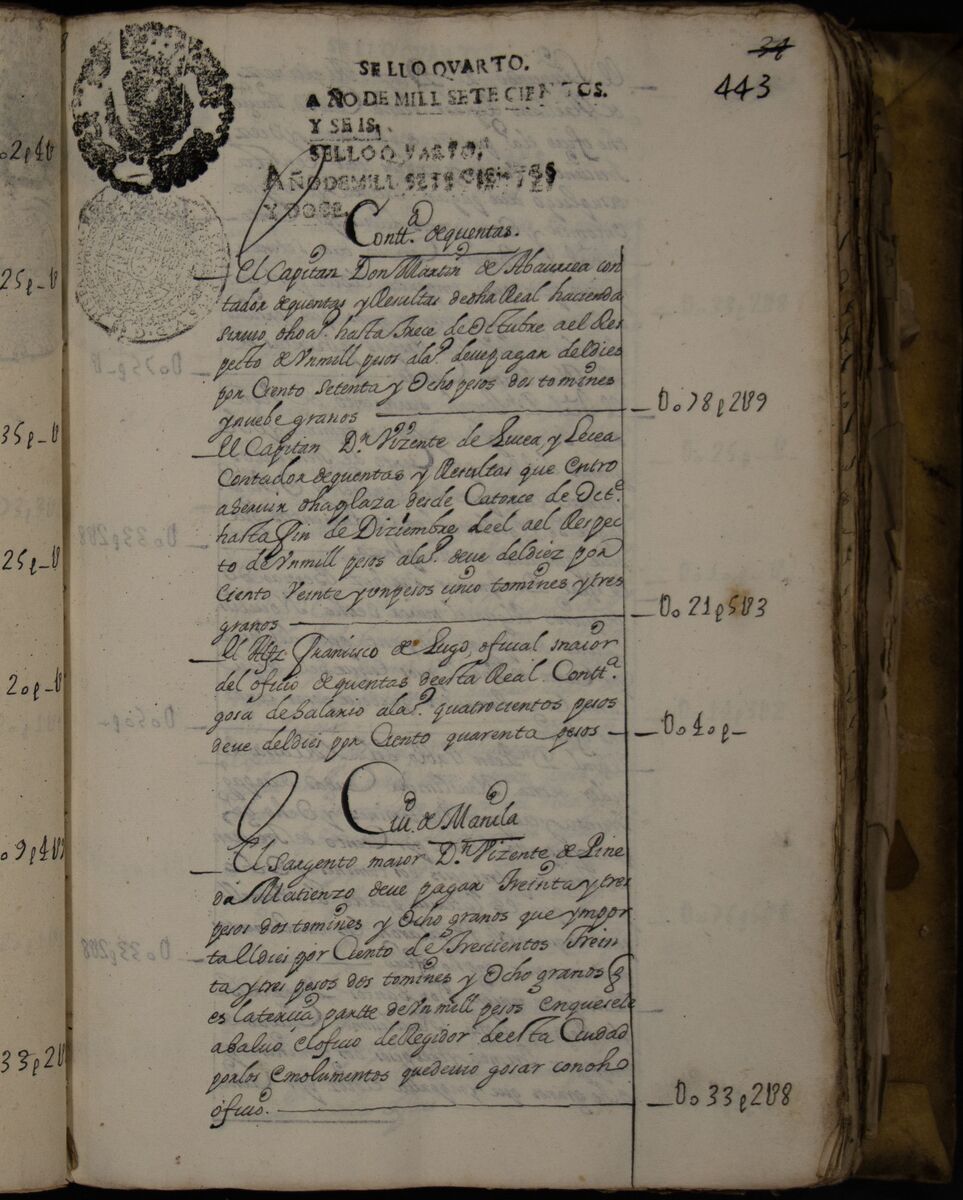 34
443
SELLO QVARTO.
AÑO DE MILL SETECIENTOS.
Y SEIS.
SELLO QVARTO,
AÑO DE MILL SETECIENTOS
Y DOCE.
Contt.ª de quentas.
El Capitan Don Martin de Abaurrea con
tador de quentas y Resultas de dha Real hacienda
siruio dho a.º hasta trece de Octubre ael Res
pecto de Vn mill pesos al a.º deue pagar del dies
por Ciento setenta y Ocho pesos dos tomines
y nuebe granos
U o 78 p 2 U 9
El Capitan D.n Vizente de Lucea y Lecea
Contador de quentas y Resultas que entro
a seruir dha plaza desde Catorce de Oct.e
hasta fin de Diziembre de el ael Respec
to de Vn mill pesos al a.º deue del diez por
Ciento Veinte y un pesos cinco tomines y tres
granos
U o 21 p 5 U 3
El Alfz Francisco de Lugo, oficial maior
del oficio de quentas de esta Real Contt.ª
gosa de Salario al a.º quatrocientos pesos
deue del dies por Ciento quarenta pesos
U o 40 p
Ciu.d de Manila
El Sargento maior D.n Vizente de Pine
da Matienzo deue pagar treinta y tres
pesos dos tomines y Ocho granos que ympor
ta el dies por Ciento de trescientos trein
ta y tres pesos dos tomines y Ocho granos q
es la tercia partte de Vn mill pesos en que se le
abaluó el oficio de Regidor de esta Ciudad
por los emolumentos que deuio gosar con dho
oficio.
U o 33 p 2 U 8
o 2 p 4 U
25 p U
35 p U
25 p U
20 p U
o 9 p 4 U
33 p 2 U